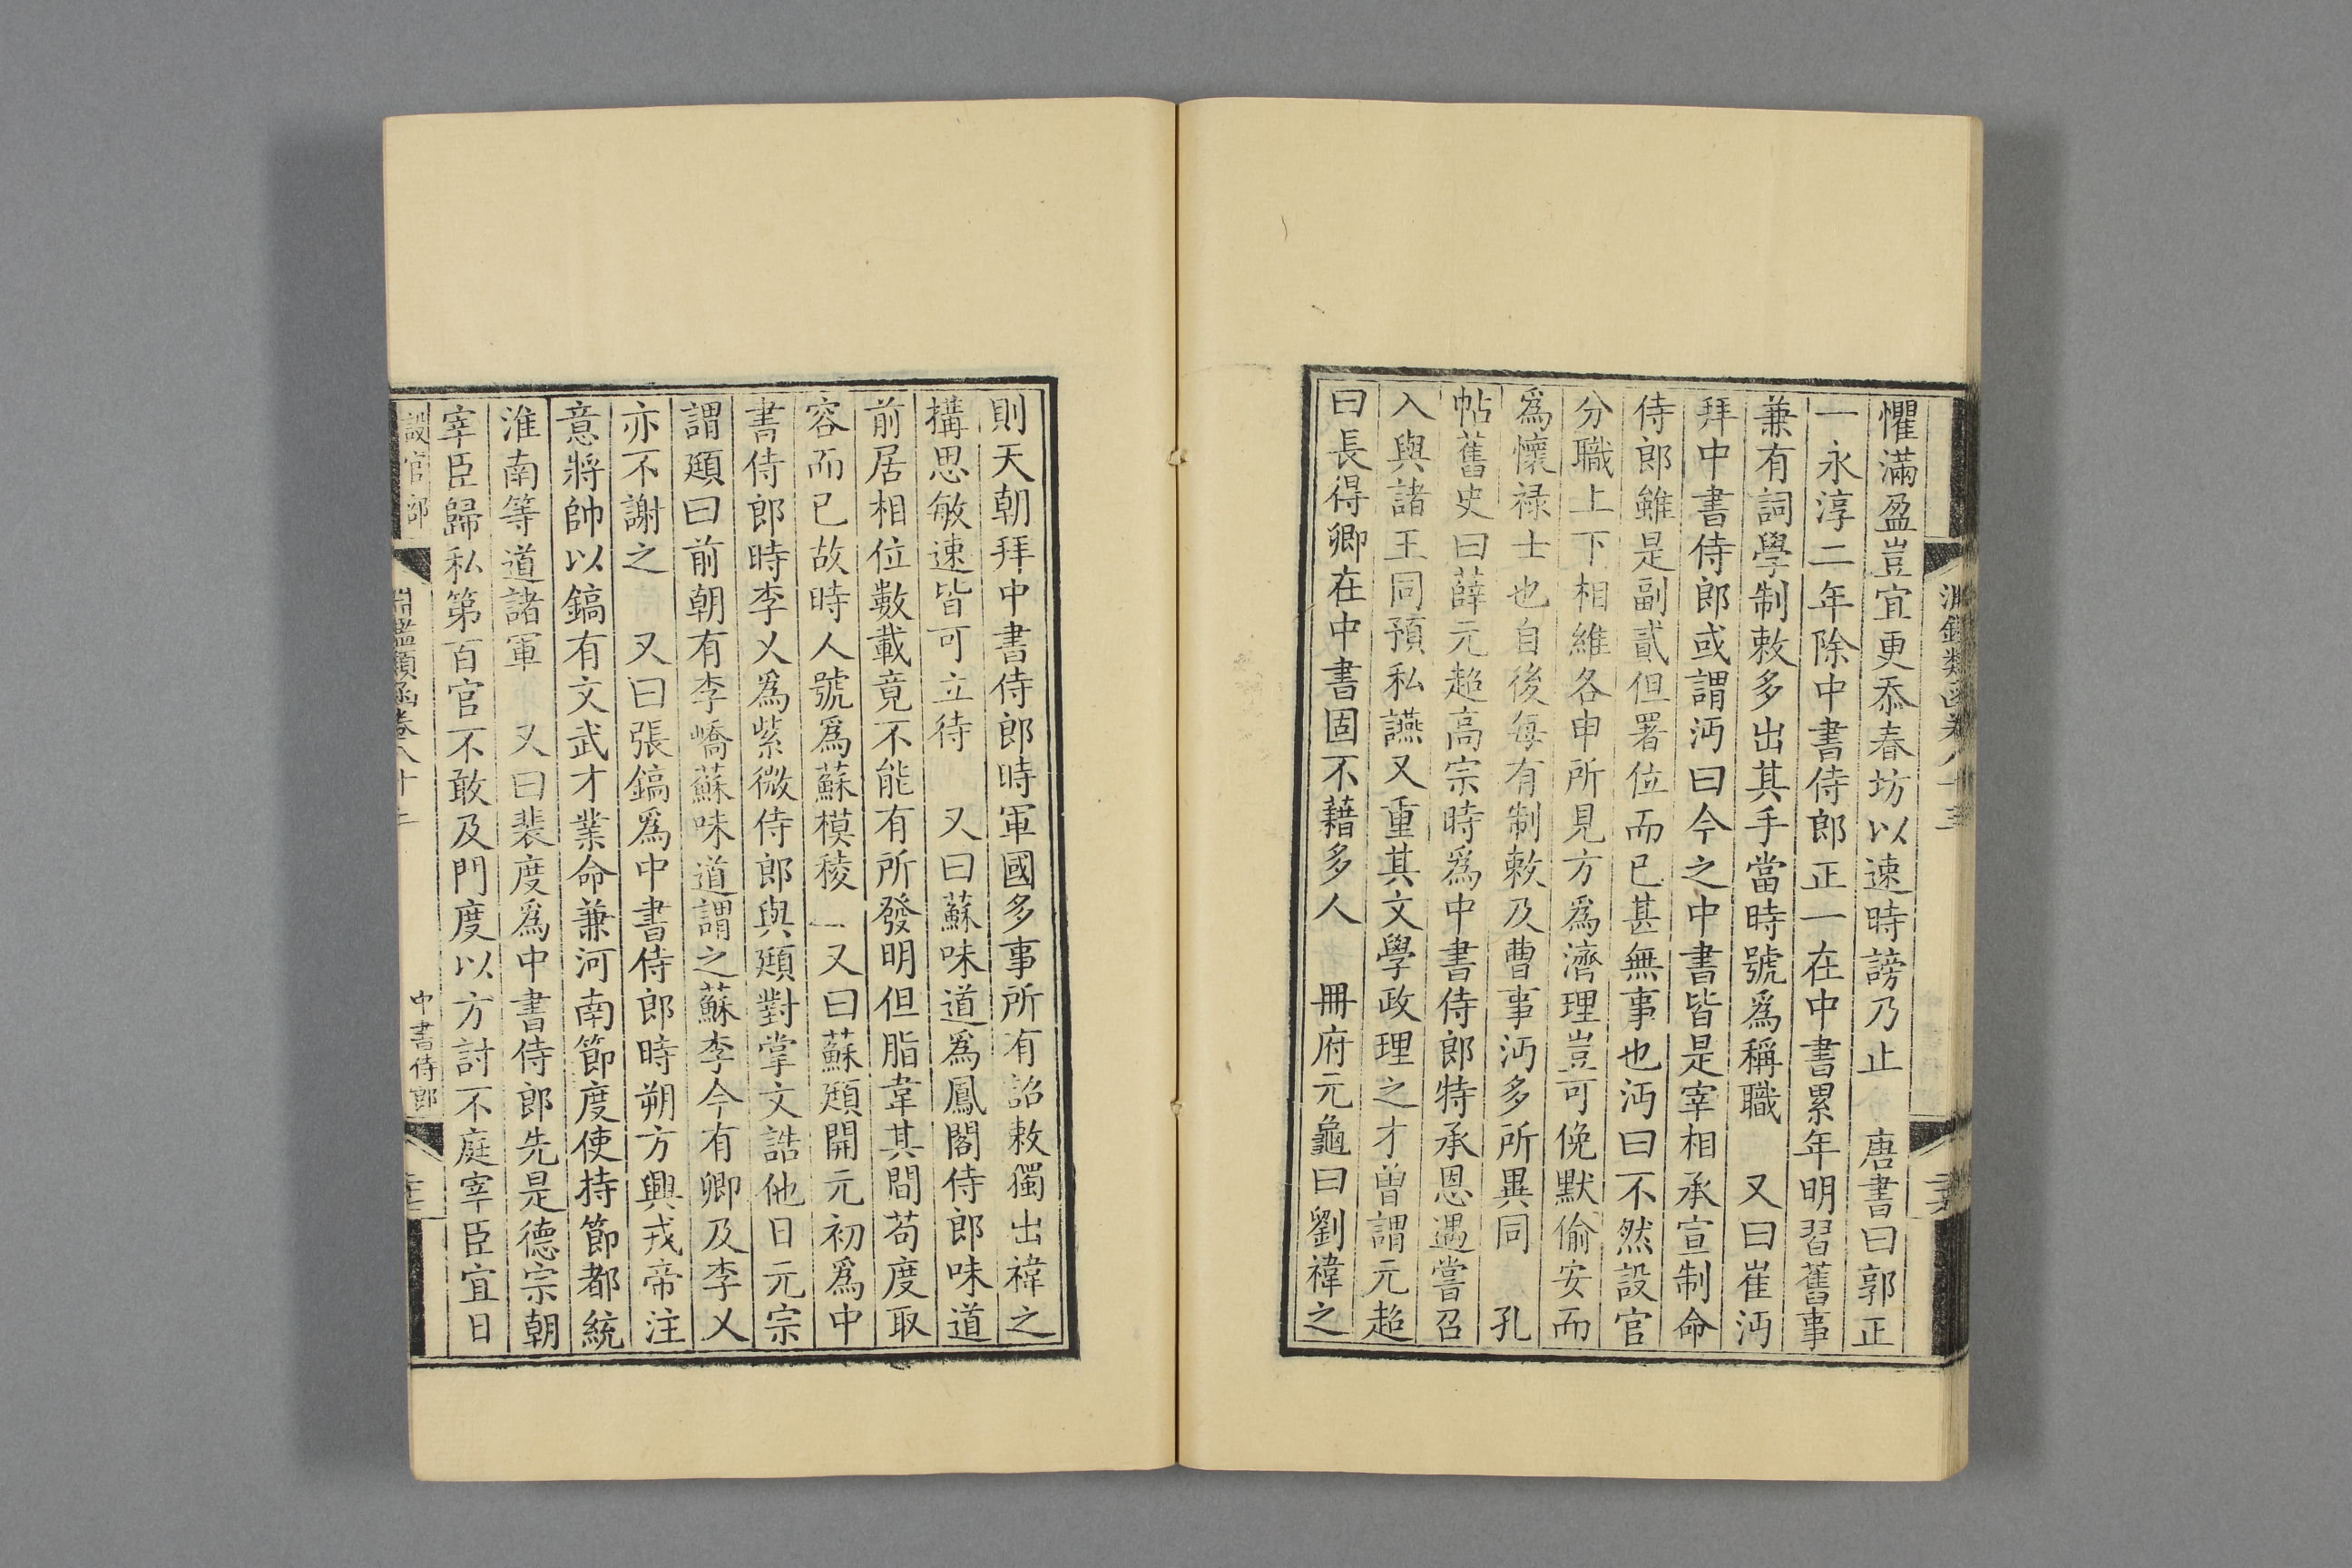 懼滿盈豈宜更忝春坊以速時謗乃止　唐書曰郭正
一永淳二年除中書侍郎正一在中書累年明習舊事
兼有詞學制敕多出其手當時號爲稱職　又曰崔沔
拜中書侍郎或謂沔曰今之中書皆是宰相承宣制命
侍郎雖是副貳但署位而已甚無事也沔曰不然設官
分職上下相維各申所見方爲濟理豈可俛默偷安而
爲懷祿士也自後每有制敕及曹事沔多所異同　孔
帖舊史曰薛元超高宗時爲中書侍郎特承恩遇嘗召
入與諸王同預私讌又重其文學政理之才曾謂元超
曰長得卿在中書固不藉多人　冊府元龜曰劉褘之
則天朝拜中書侍郎時軍國多事所有詔敕獨出褘之
構思敏速皆可立待　又曰蘇味道爲鳳閣侍郎味道
前居相位數載竟不能有所發明但脂韋其間苟度取
容而已故時人號爲蘇模稜　又曰蘇頲開元初爲中
書侍郎時李乂爲紫微侍郎與頲對掌文誥他日元宗
謂頲曰前朝有李嶠蘇味道謂之蘇李今有卿及李乂
亦不謝之　又曰張鎬爲中書侍郎時朔方興戎帝注
意將帥以鎬有文武才業命兼河南節度使持節都統
淮南等道諸軍　又曰裴度爲中書侍郎先是德宗朝
宰臣歸私第百官不敢及門度以方討不庭宰臣宜日
設官部
淵鑑類函卷八十
中書侍郎